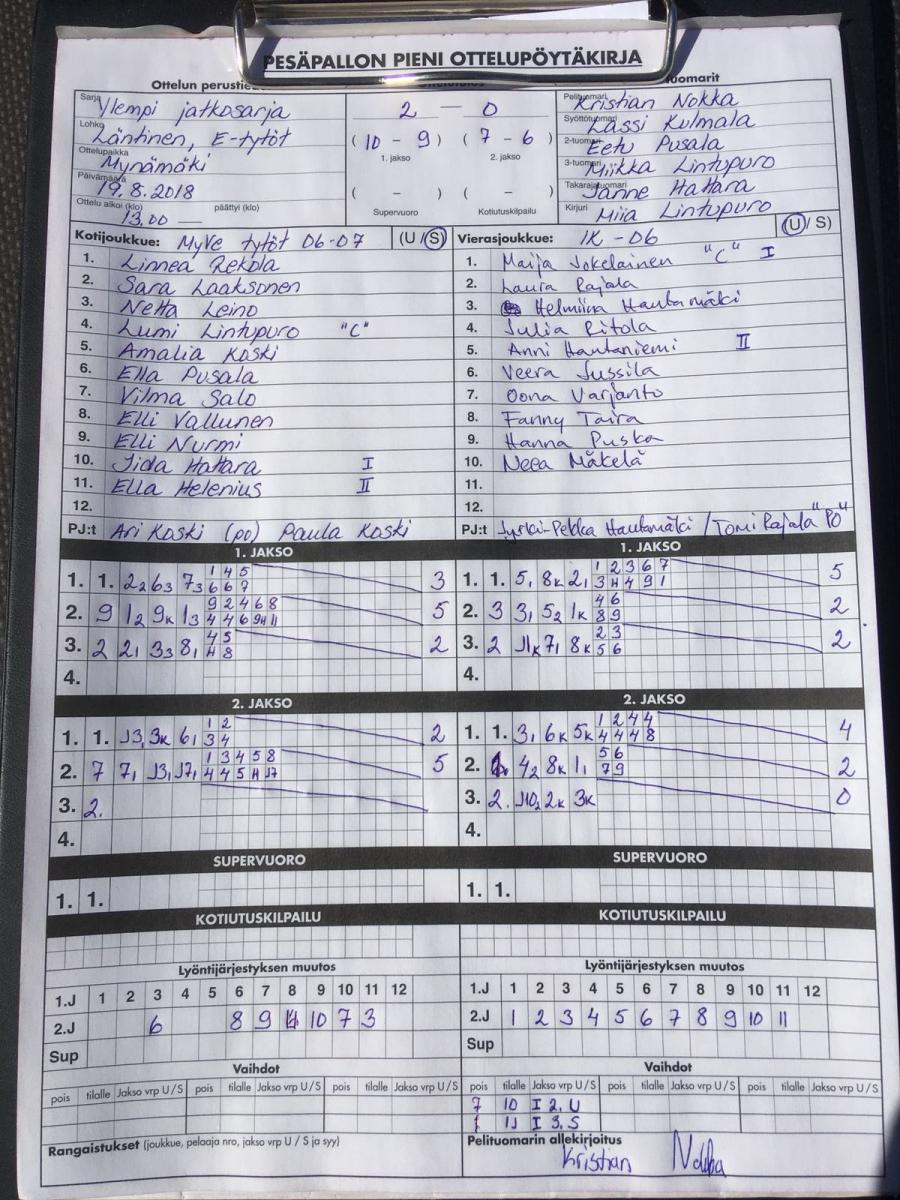 PESÄPALLON PIENI OTTELUPÖYTÄKIRJA
Ottelun perustie
tuomarit
Sarja Ylempi jatkosarja
Lohko Läntinen, E-tytöt
Ottelupaikka Mynämäki
Päivämäärä 19.8.2018
Ottelu alkoi (klo) 13.00 — päättyi (klo)
2 — 0
(10 - 9) (7 - 6)
1. jakso 2. jakso
( - ) ( - )
Supervuoro Kotiutuskilpailu
Pelituomari Kristian Nokka
Syöttötuomari Lassi Kulmala
2-tuomari Eetu Pusala
3-tuomari Miikka Lintupuro
Takarajatuomari Janne Hattara
Kirjuri Miia Lintupuro
Kotijoukkue: MyVe tytöt 06-07 (U/S)
1. Linnea Rekola
2. Sara Laaksonen
3. Netta Leino
4. Lumi Lintupuro "C"
5. Amalia Koski
6. Ella Pusala
7. Vilma Salo
8. Elli Vallunen
9. Elli Nurmi
10. Iida Hattara I
11. Ella Helenius II
12.
PJ:t Ari Koski (po) Paula Koski
Vierasjoukkue: IK -06 (U/S)
1. Maija Jokelainen "C" I
2. Laura Rajala
3. Helmiina Hautamäki
4. Julia Ritola
5. Anni Hautaniemi II
6. Veera Jussila
7. Oona Varjanto
8. Fanny Taira
9. Hanna Puska
10. Neea Mäkelä
11.
12.
PJ:t Jyrki-Pekka Hautamäki / Tomi Rajala "PO"
1. JAKSO
1. 1. 2₂ 6₃ 7₃ 1 4 5 3
6 6 7
2. 9 1₂ 9k 1₃ 9 2 4 6 8 5
4 4 6 9H 11
3. 2 2₁ 3₃ 8₁ 4 5 2
H 8
4.
1. JAKSO
1. 1. 5₁ 8k 2₁ 1 2 3 6 7 5
3 H 4 9 1
2. 3 3₁ 5₂ 1k 4 6 2
8 9
3. 2 J1k 7₁ 8k 2 3 2
5 6
4.
2. JAKSO
1. 1. J3₁ 3k 6₁ 1 2 2
3 4
2. 7 7₁ J3₁ J7₁ 1 3 4 5 8 5
4 4 5 H J7
3. 2.
4.
2. JAKSO
1. 1. 3₁ 6k 5k 1 2 4 4 4
4 4 4 8
2. 4₂ 8k 1₁ 5 6 2
7 9
3. 2. J10₂ 2k 3k 0
4.
SUPERVUORO
1. 1.
SUPERVUORO
1. 1.
KOTIUTUSKILPAILU
KOTIUTUSKILPAILU
Lyöntijärjestyksen muutos
1.J 1 2 3 4 5 6 7 8 9 10 11 12
2.J 6 8 9 10 7 3
Sup
Lyöntijärjestyksen muutos
1.J 1 2 3 4 5 6 7 8 9 10 11 12
2.J 1 2 3 4 5 6 7 8 9 10 11
Sup
Vaihdot
pois tilalle Jakso vrp U/S pois tilalle Jakso vrp U/S pois tilalle Jakso vrp U/S
Vaihdot
pois tilalle Jakso vrp U/S pois tilalle Jakso vrp U/S pois tilalle Jakso vrp U/S
7 10 I 2. U
1 11 I 3. S
Rangaistukset (joukkue, pelaaja nro, jakso vrp U / S ja syy)
Pelituomarin allekirjoitus
Kristian Nokka